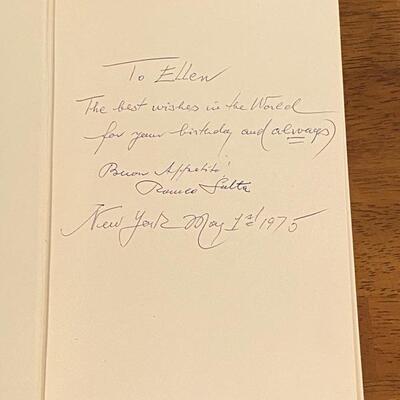 To Ellen
The best wishes in the World
for your birthday and (always)
Buon Appetito!
Romeo Salta
New York May 1st 1975